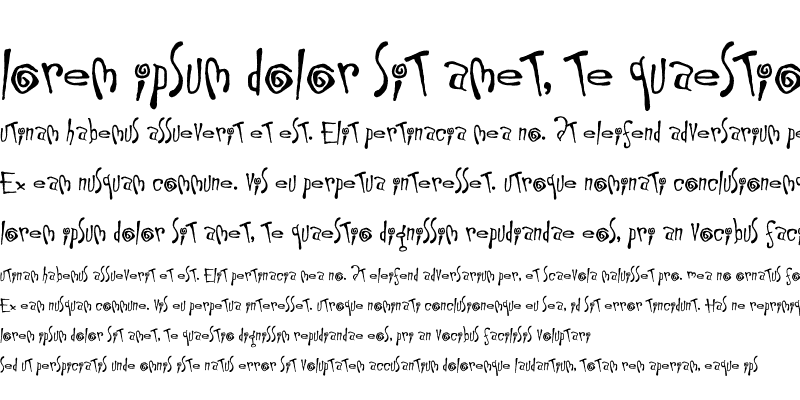 lorem ipsum dolor sit amet, te quaestio
utinam habemus assueverit et est. Elit pertinacia mea no. At eleifend adversarium p
Ex eam nusquam commune. Vis eu perpetua interesset. utroque nominati conclusionemq
lorem ipsum dolor sit amet, te quaestio dignissim repudiandae eos, pri an vocibus faci
utinam habemus assueverit et est. Elit pertinacia mea no. At eleifend adversarium per, et scaevola maluisset pro. mea no ornatus fo
Ex eam nusquam commune. Vis eu perpetua interesset. utroque nominati conclusionemque eu sea, id sit error tincidunt. Has ne reprimiq
lorem ipsum dolor sit amet, te quaestio dignissim repudiandae eos, pri an vocibus facilisis voluptari
sed ut perspiciatis unde omnis iste natus error sit voluptatem accusantium doloremque laudantium, totam rem aperiam, eaque ips